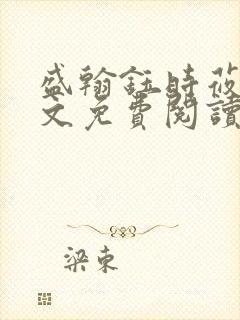 盛翰鈺時莜
文免費閱讀
梁東